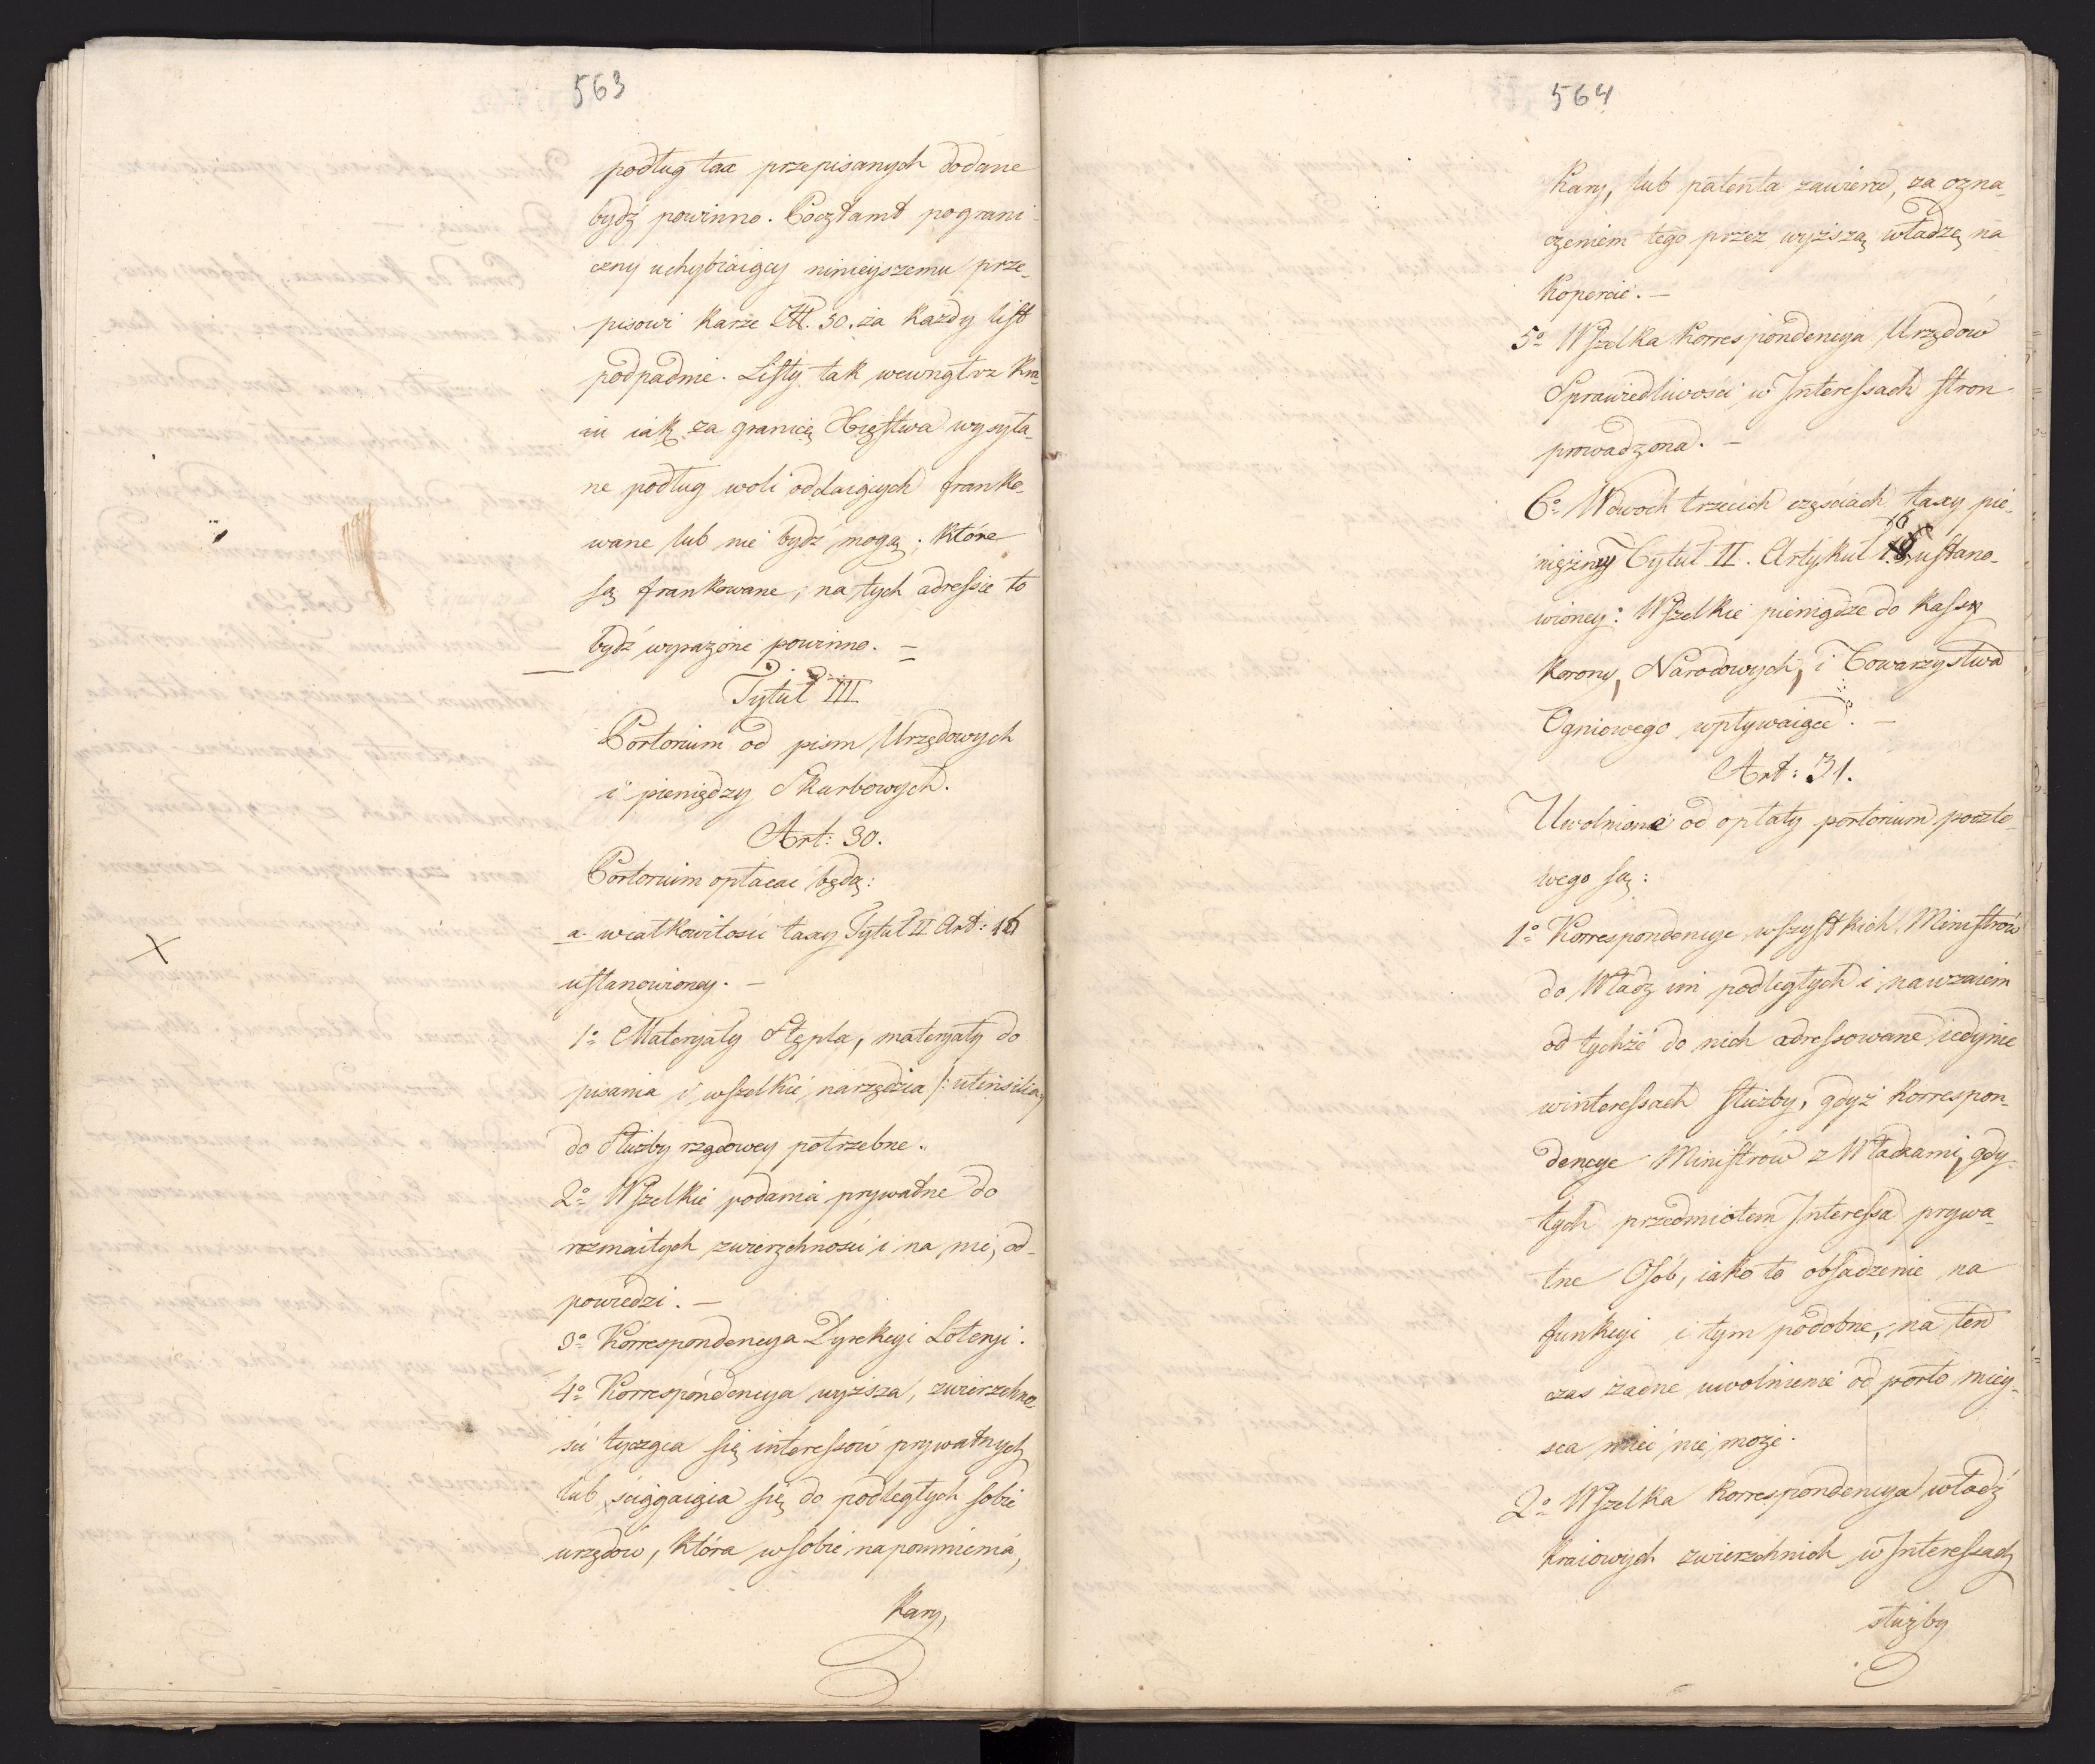 563
podług tax przepisanych dodane
bydź powinno. Pocztamt pograni-
czny uchybiaiący ninieyszemu prze-
pisowi karze Zł. 50. za każdy list
podpadnie. Listy tak wewnątrz kra-
iu iak za granicę Xięstwa wysyła-
ne podług woli oddaiących franko-
wane lub nie bydz mogą; które
są frankowane, na tych adressie to
bydź wyrażone powinno. —
Tytuł III
Portorium od pism Urzędowych
i pieniędzy Skarbowych.
Art: 30.
Portorium opłacac będą:
a. wcałkowitości taxy Tytuł II Art: 16
ustanowioney. —
1o Materyały Stępla, materyały do
pisania i wszelkie narzędzia /: utensilia
do Służby rządowey potrzebne.
2o Wszelkie podania prywatne do
rozmaitych zwierzchności i na nie, od-
powiedzi. —
3o Korrespondencya Dyrekcyi Loteryi.
4o Korrespondencya wyższa, zwierzchno-
ści tycząca się interessów prywatnych
lub ściągaiąca się do podległych sobie
urzędów, która wsobie napomnienia,
Kary,
564
Kary, lub patenta zawiera, za ozna-
czeniem tego przez wyższą władzę na
kopercie. —
5o Wszelka korrespondencya Urzędów
Sprawiedliwości w Interessach stron
prowadzona. —
6o Wdwoch trzecich częściach taxy pie-
niężney Tytuł II. Artykuł 16 ustano-
wioney: Wszelkie pieniądze do kassy
korony, Narodowych, i Towarzystwa
Ogniowego wpływaiące. —
Art: 31.
Uwolnione od opłaty portorium poczto-
wego są:
1o Korrespondencye wszystkich Ministrów
do Władz im podległych i nawzaiem
od tychże do nich adressowane iedynie
winteressach służby, gdyż korrespon-
dencye Ministrów z Władzami, gdy
tych przedmiotem Interessa prywa-
tne Osób, iako to obsadzenie na
funkcyi i tym podobne, na ten
czas żadne uwolnienie od porto miey-
sca mieć nie może.
2o Wszelka korrespondencya władz
kraiowych zwierzchnich w Interessach
służby